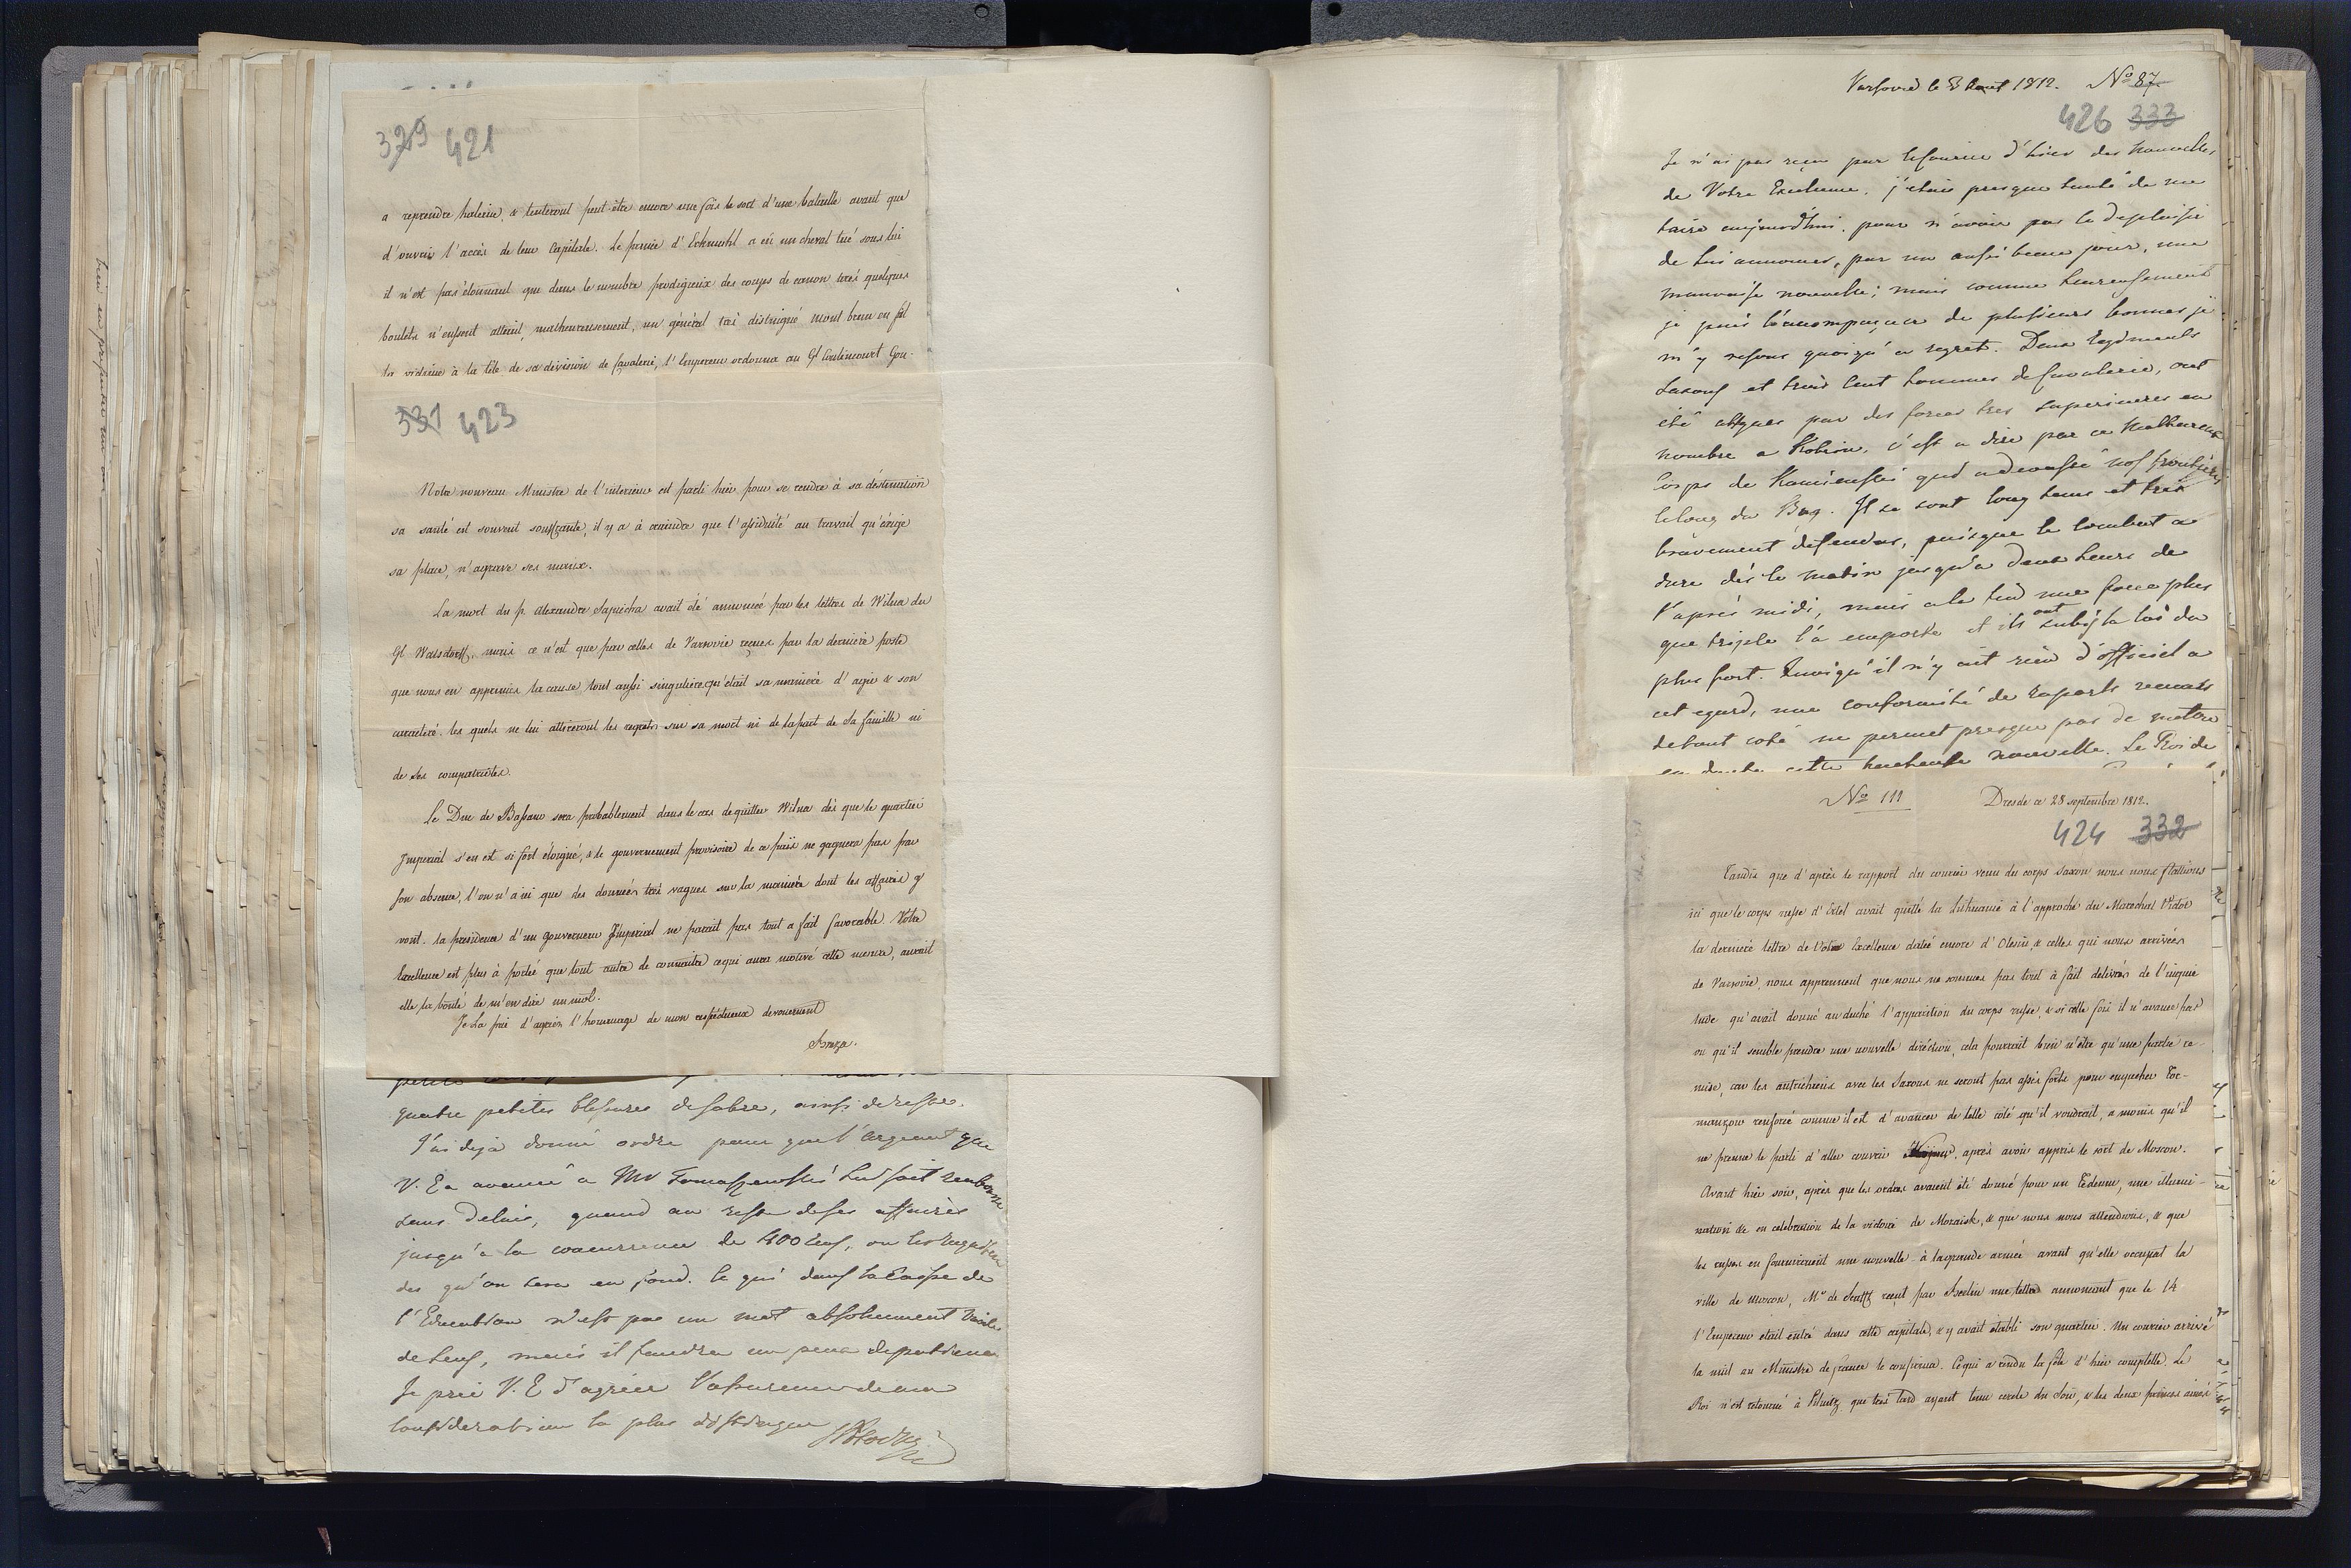 329 421
a reprendre haleine, & tenteront peut-être encore une fois le sort d'une bataille avant que
d'ouvrir l'accès de leur Capitale. Le prince d'Eckmuhl a eü un cheval tué sous lui
il n'est pas étonnant que dans le nombre prodigieux des coups de canon tirés quelques
boulets n'eussent atteint, malheureusement, un général très distingué Montbrun en fut
la victime à la tête de sa division de cavalerie, l'Empereur ordonna au Gl Coulincourt Gou-
331 423
Notre nouveau Ministre de l'interieur est parti hier pour se rendre à sa déstination
sa santé est souvent souffrante, il y a à craindre que l'assiduité au travail qu'exige
sa place, n'agrave ses maux.
La mort du p. Alexandre Sapieha avait été annoncée par les lettres de Wilna du
Gl Watsdorff, mais ce n'est que par celles de Varsovie reçues par la dernière poste
que nous en apprimes la cause tout aussi singulière qu'était sa manière d'agir & son
caractère. les quels ne lui attireront les regrets sur sa mort ni de la part de sa famille ni
de ses compatriotes.
Le Duc de Bassano sera probablement dans le cas de quitter Wilna dès que le quartier
Imperial s'en est si fort éloigné, & le gouvernement provisoire de ce païs ne gagnera pas par
son absence, l'on n'a ici que des données très vagues sur la manière dont les affaires y
vont. la presidence d'un gouverneur Imperial ne parait pas tout a fait favorable. Votre
Excellence est plus à portée que tout autre de connaitre ce qui aura motivé cette mesure, aurait
elle la bonté de m'en dire un mot.
Je La prie d'agréer l'hommage de mon respéctueux devouement
Breza.
quatre petites blessures de sabre, ainsi de reste.
J'ai deja donné ordre pour que l'argent que
V. E a avancé a Mr Tomaszewski lui soit rembourse
sans delais, quand au reste de ses affaires
jusqu'a la concurrence de 400
des qu'on sera en fond. ce qui dans la Caisse de
l'Education n'est pas un mot absolument
de sens, mais il faudra un peu de patience
Je prie V. E d'agréer l'assurance de ma
consideration la plus distinguée
Varsovie le 3 Aout 1812. No 87
426 333
Je n'ai pas reçu par le courier d'hier des nouvelles
de Votre Excellence. j'etais presque tenté de me
taire aujourd'hui, pour n'avoir pas le deplaisir
de lui annoncer, par un aussi beau jour, une
mauvaise nouvelle; mais comme heureusement
je puis l'accompagner de plusieurs bonnes je
m'y resous quoiqu'a regret. Deux Regiments
Saxons et trois Cent hommes de cavalerie, ont
été attaqués par des forces tres superieures en
nombre a Kobrin, c'est a dire par ce malheureux
Corps de Kamienski qui a devasté nos frontières
le long du Bug. Ils se sont long tems et tres
bravement defendus, puisque le combat a
duré dès le matin jusqu'a deux heures de
l'après midi, mais a la fin une force plus
que triple l'a emporté et ils ont subi la loi du
plus fort. Quoiqu'il n'y ait rien d'officiel a
cet egard, une conformité de raports venants
de tout coté ne permet presque pas de mettre
en doute cette facheuse nouvelle. Le Roi de
No 111 Dresde ce 28 septembre 1812.
424 332
Tandis que d'après le rapport du courier venu du corps Saxon nous nous flattions
ici que le corps russe d'Ertel avait quitté la Lithuanie à l'approche du Marechal Victor
la dernière lettre de Votre Excellence datée encore d'Olesin & celles qui nous arrivées
de Varsovie, nous apprennent que nous ne sommes pas tout à fait delivrés de l'inquie
tude qu'avait donné au duché l'apparition du corps russe, & si cette fois il n'avance pas
ou qu'il semble prendre une nouvelle diréction, cela pourrait bien n'être qu'une partie re-
mise, car les autrichiens avec les Saxons ne seront pas assés forts pour empecher Tor-
manzow renforcé comme il est d'avancer de telle coté qu'il voudrait, a moins qu'il
ne prenne le parti d'aller couvrir après avoir appris le sort de Moscou.
Avant hier soir, après que les ordres avaient été donné pour un Tedeum, une illumi-
nation &c en celebration de la victoire de Mozaisk, & que nous nous attendions, & que
les russes en fourniraient une nouvelle à la grande armée avant qu'elle occupat la
ville de Moscou, Mr de Senfft reçut par Berlin une lettre annonçant que le 14
l'Empereur était entré dans cette capitale, & y avait établi son quartier. Un courier arrivé
la nuit au Ministre de france le confirma. Ce qui a rendu la fête d'hier complette. Le
Roi n'est retourné à Pilnitz que très tard ayant tenu cercle du soir, & les deux princes ainés